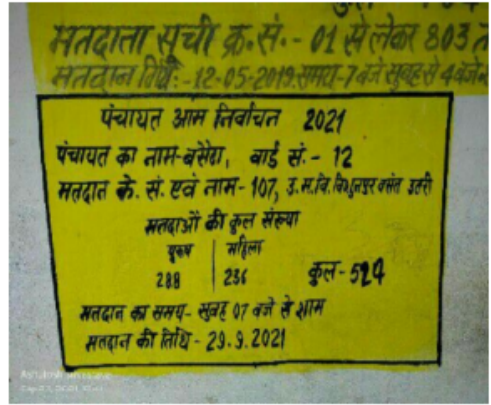 मतदाता सूची क्र.सं.- 01 से लेकर 803 त
मतदान तिथि:-12-05-2019 समय-7 बजे सुबह से 4 बजे
पंचायत आम निर्वाचन 2021
पंचायत का नाम-बसैदा, वार्ड सं.- 12
मतदान के. सं. एवं नाम-107, उ.म.वि. विशुनपुर बसंत उतरी
मतदाओं की कुल संख्या
पुरुष महिला
288 236 कुल-524
मतदान का समय- सुबह 07 बजे से शाम
मतदान की तिथि - 29.9.2021